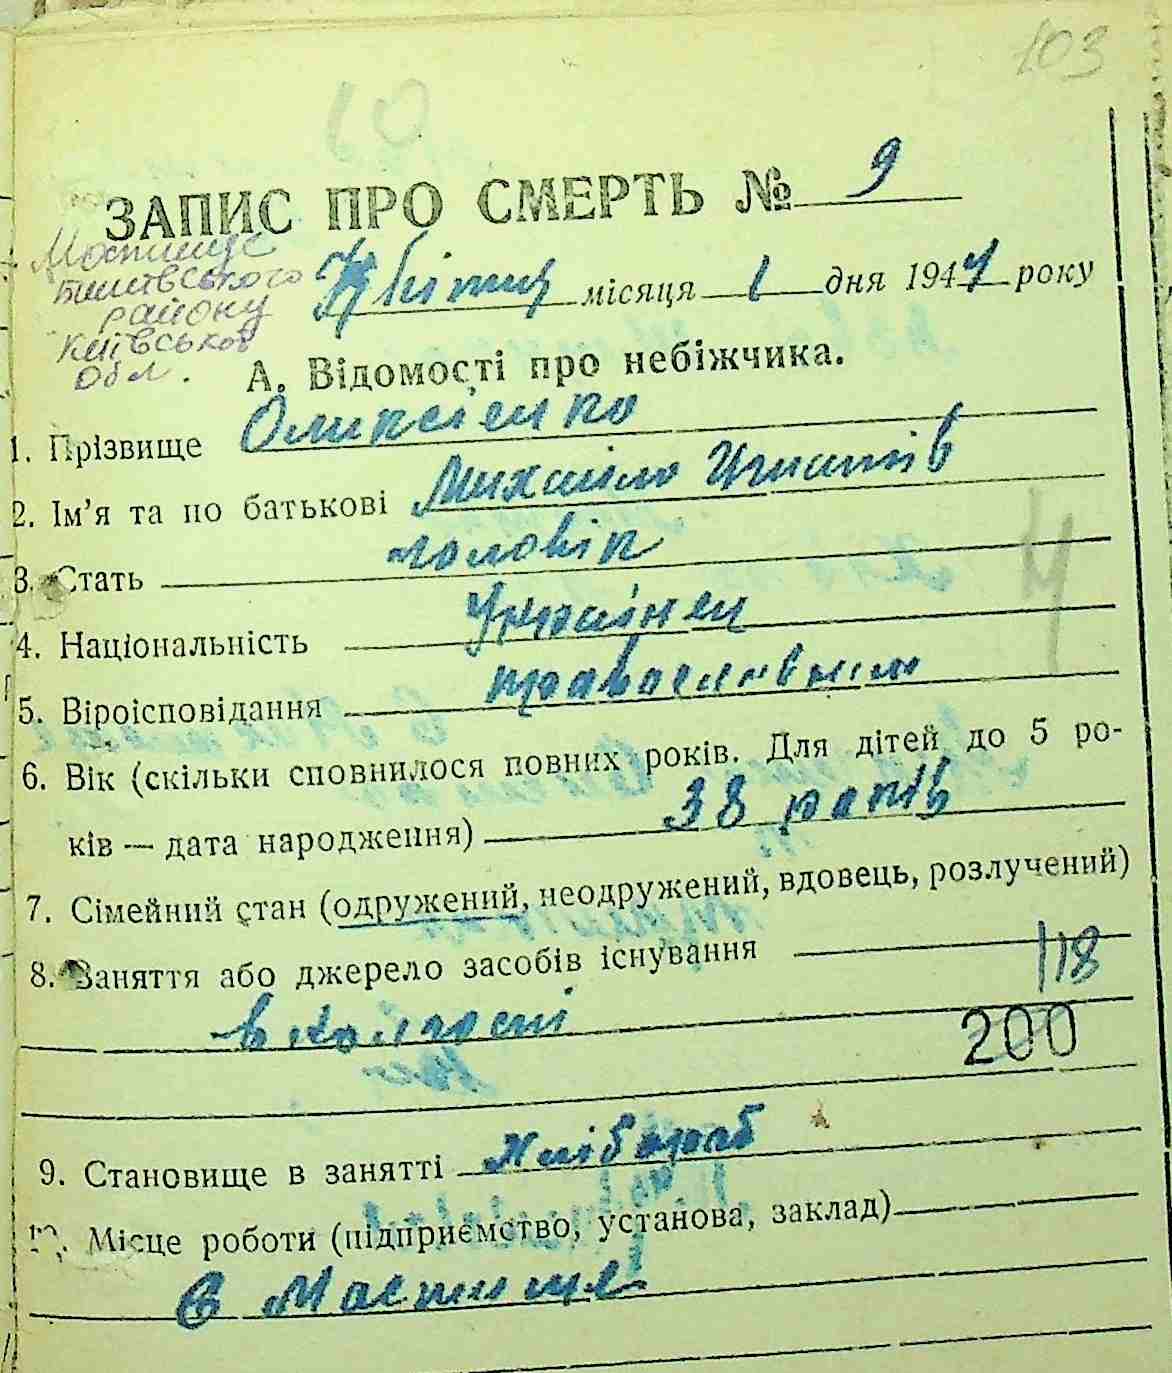 103
ЗАПИС ПРО СМЕРТЬ № 9
Мостище
району
Київської
Обл.
Квітня місяця 1 дня 194 року
А. Відомості про небіжчика.
1. Прізвище Оликсієнко
2. Ім’я та по батькові Михайло Ігнатів
3. Стать чоловік
4. Національність Українец
5. Віроісповідання православним
6. Вік (скільки сповнилося повних років. Для дітей до 5 ро-
ків — дата народження) 38 років
7. Сімейний стан (одружений, неодружений, вдовець, розлучений)
8. Заняття або джерело засобів існування
118
в колгоспі
200
9. Становище в занятті Хлібороб
10. Місце роботи (підприємство, установа, заклад)
В Мостище